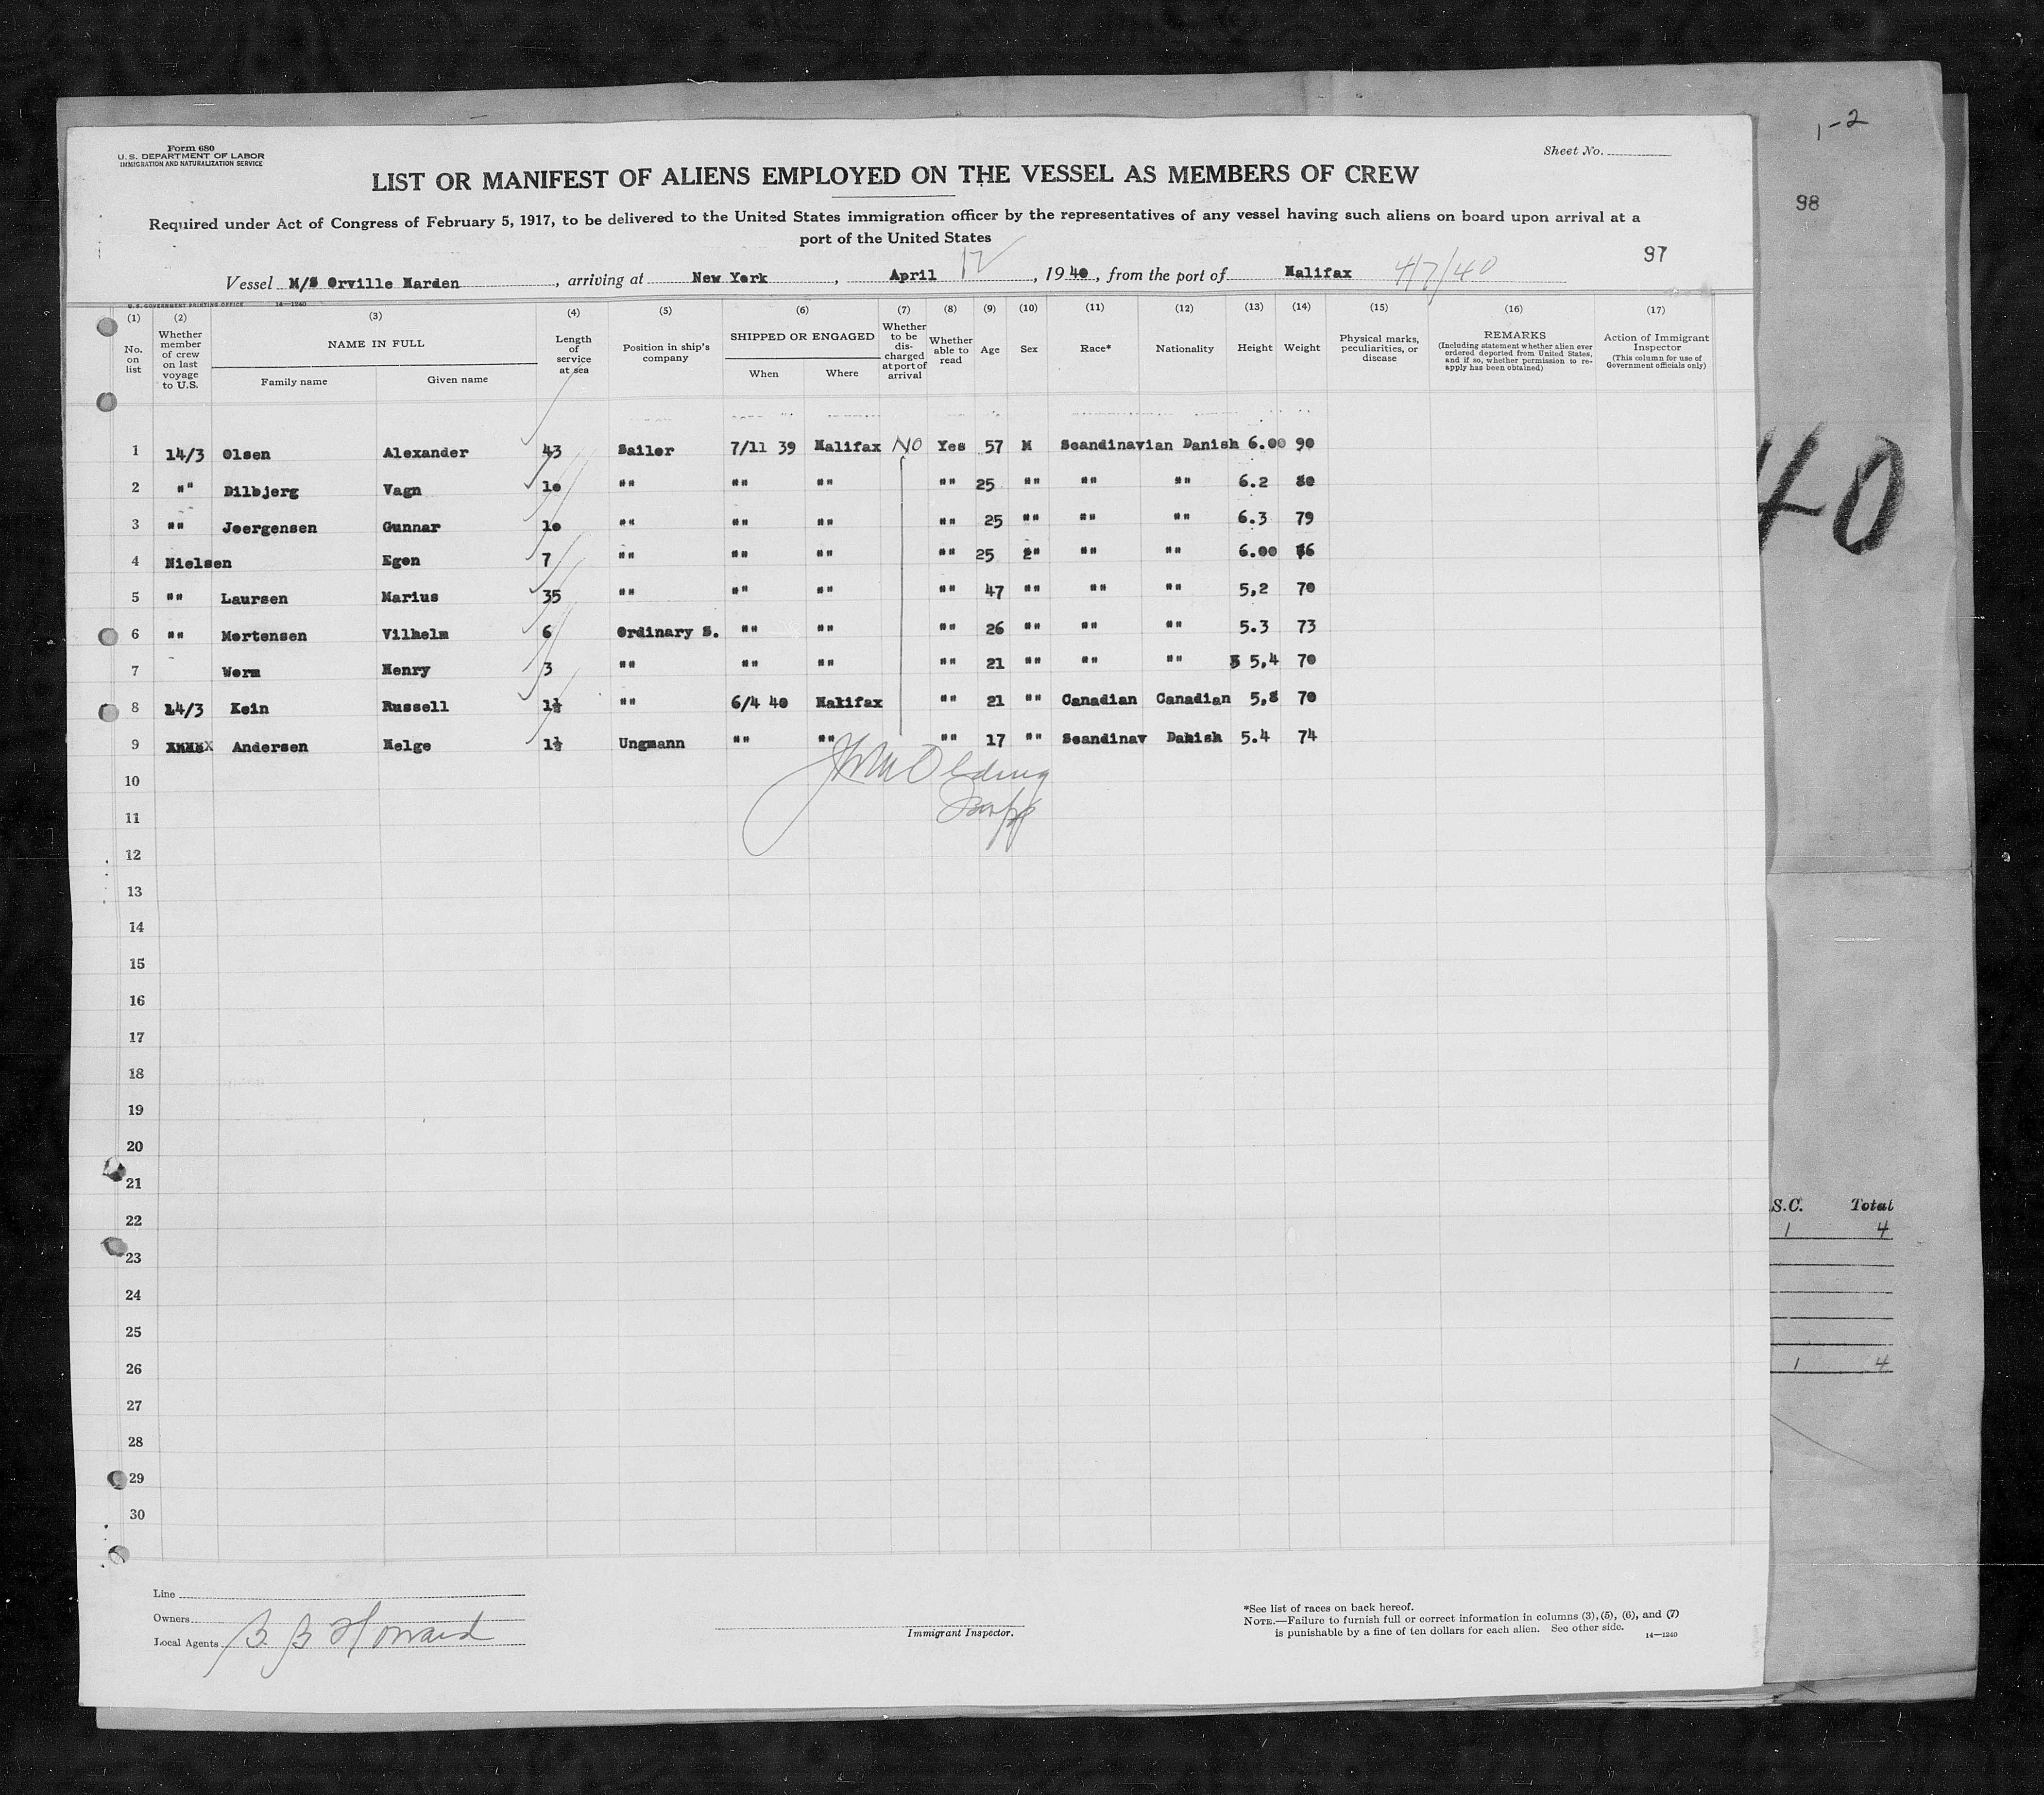 1-2
98
40
S.C. Total
1 4
1 4
Form 680
U. S. DEPARTMENT OF LABOR
IMMIGRATION AND NATURALIZATION SERVICE
Sheet No.
LIST OR MANIFEST OF ALIENS EMPLOYED ON THE VESSEL AS MEMBERS OF CREW
Required under Act of Congress of February 5, 1917, to be delivered to the United States immigration officer by the representatives of any vessel having such aliens on board upon arrival at a
port of the United States
97
Vessel M/S Orville Harden, arriving at New York, April 12, 1940, from the port of Halifax 4/7/40
U. S. GOVERNMENT PRINTING OFFICE 14—1240
(1) No. on list
(2) Whether member of crew on last voyage to U.S.
(3) NAME IN FULL
Family name Given name
(4) Length of service at sea
(5) Position in ship's company
(6) SHIPPED OR ENGAGED
When Where
(7) Whether to be discharged at port of arrival
(8) Whether able to read
(9) Age
(10) Sex
(11) Race*
(12) Nationality
(13) Height
(14) Weight
(15) Physical marks, peculiarities, or disease
(16) REMARKS (Including statement whether alien ever ordered deported from United States, and if so, whether permission to re-apply has been obtained)
(17) Action of Immigrant Inspector (This column for use of Government officials only)
1 14/3 Olsen Alexander 43 Sailor 7/11 39 Halifax NO Yes 57 M Scandinavian Danish 6.00 90
2 "" Dilbjerg Vagn 10 "" "" "" "" 25 "" "" "" 6.2 80
3 "" Joergensen Gunnar 10 "" "" "" "" 25 "" "" "" 6.3 79
4 Nielsen Egon 7 "" "" "" "" 25 "" "" "" 6.00 76
5 "" Laursen Marius 35 "" "" "" "" 47 "" "" "" 5,2 70
6 "" Mortensen Vilhelm 6 Ordinary S. "" "" "" 26 "" "" "" 5.3 73
7 Worm Henry 3 "" "" "" "" 21 "" "" "" 5,4 70
8 14/3 Kein Russell 1½ "" 6/4 40 Halifax "" 21 "" Canadian Canadian 5,8 70
9 Andersen Helge 1½ Ungmann "" "" "" 17 "" Scandinav Danish 5.4 74
10
11
12
13
14
15
16
17
18
19
20
21
22
23
24
25
26
27
28
29
30
Line
Owners
Local Agents B B Howard
Immigrant Inspector.
*See list of races on back hereof.
NOTE.—Failure to furnish full or correct information in columns (3), (5), (6), and (7)
is punishable by a fine of ten dollars for each alien. See other side. 14—1240